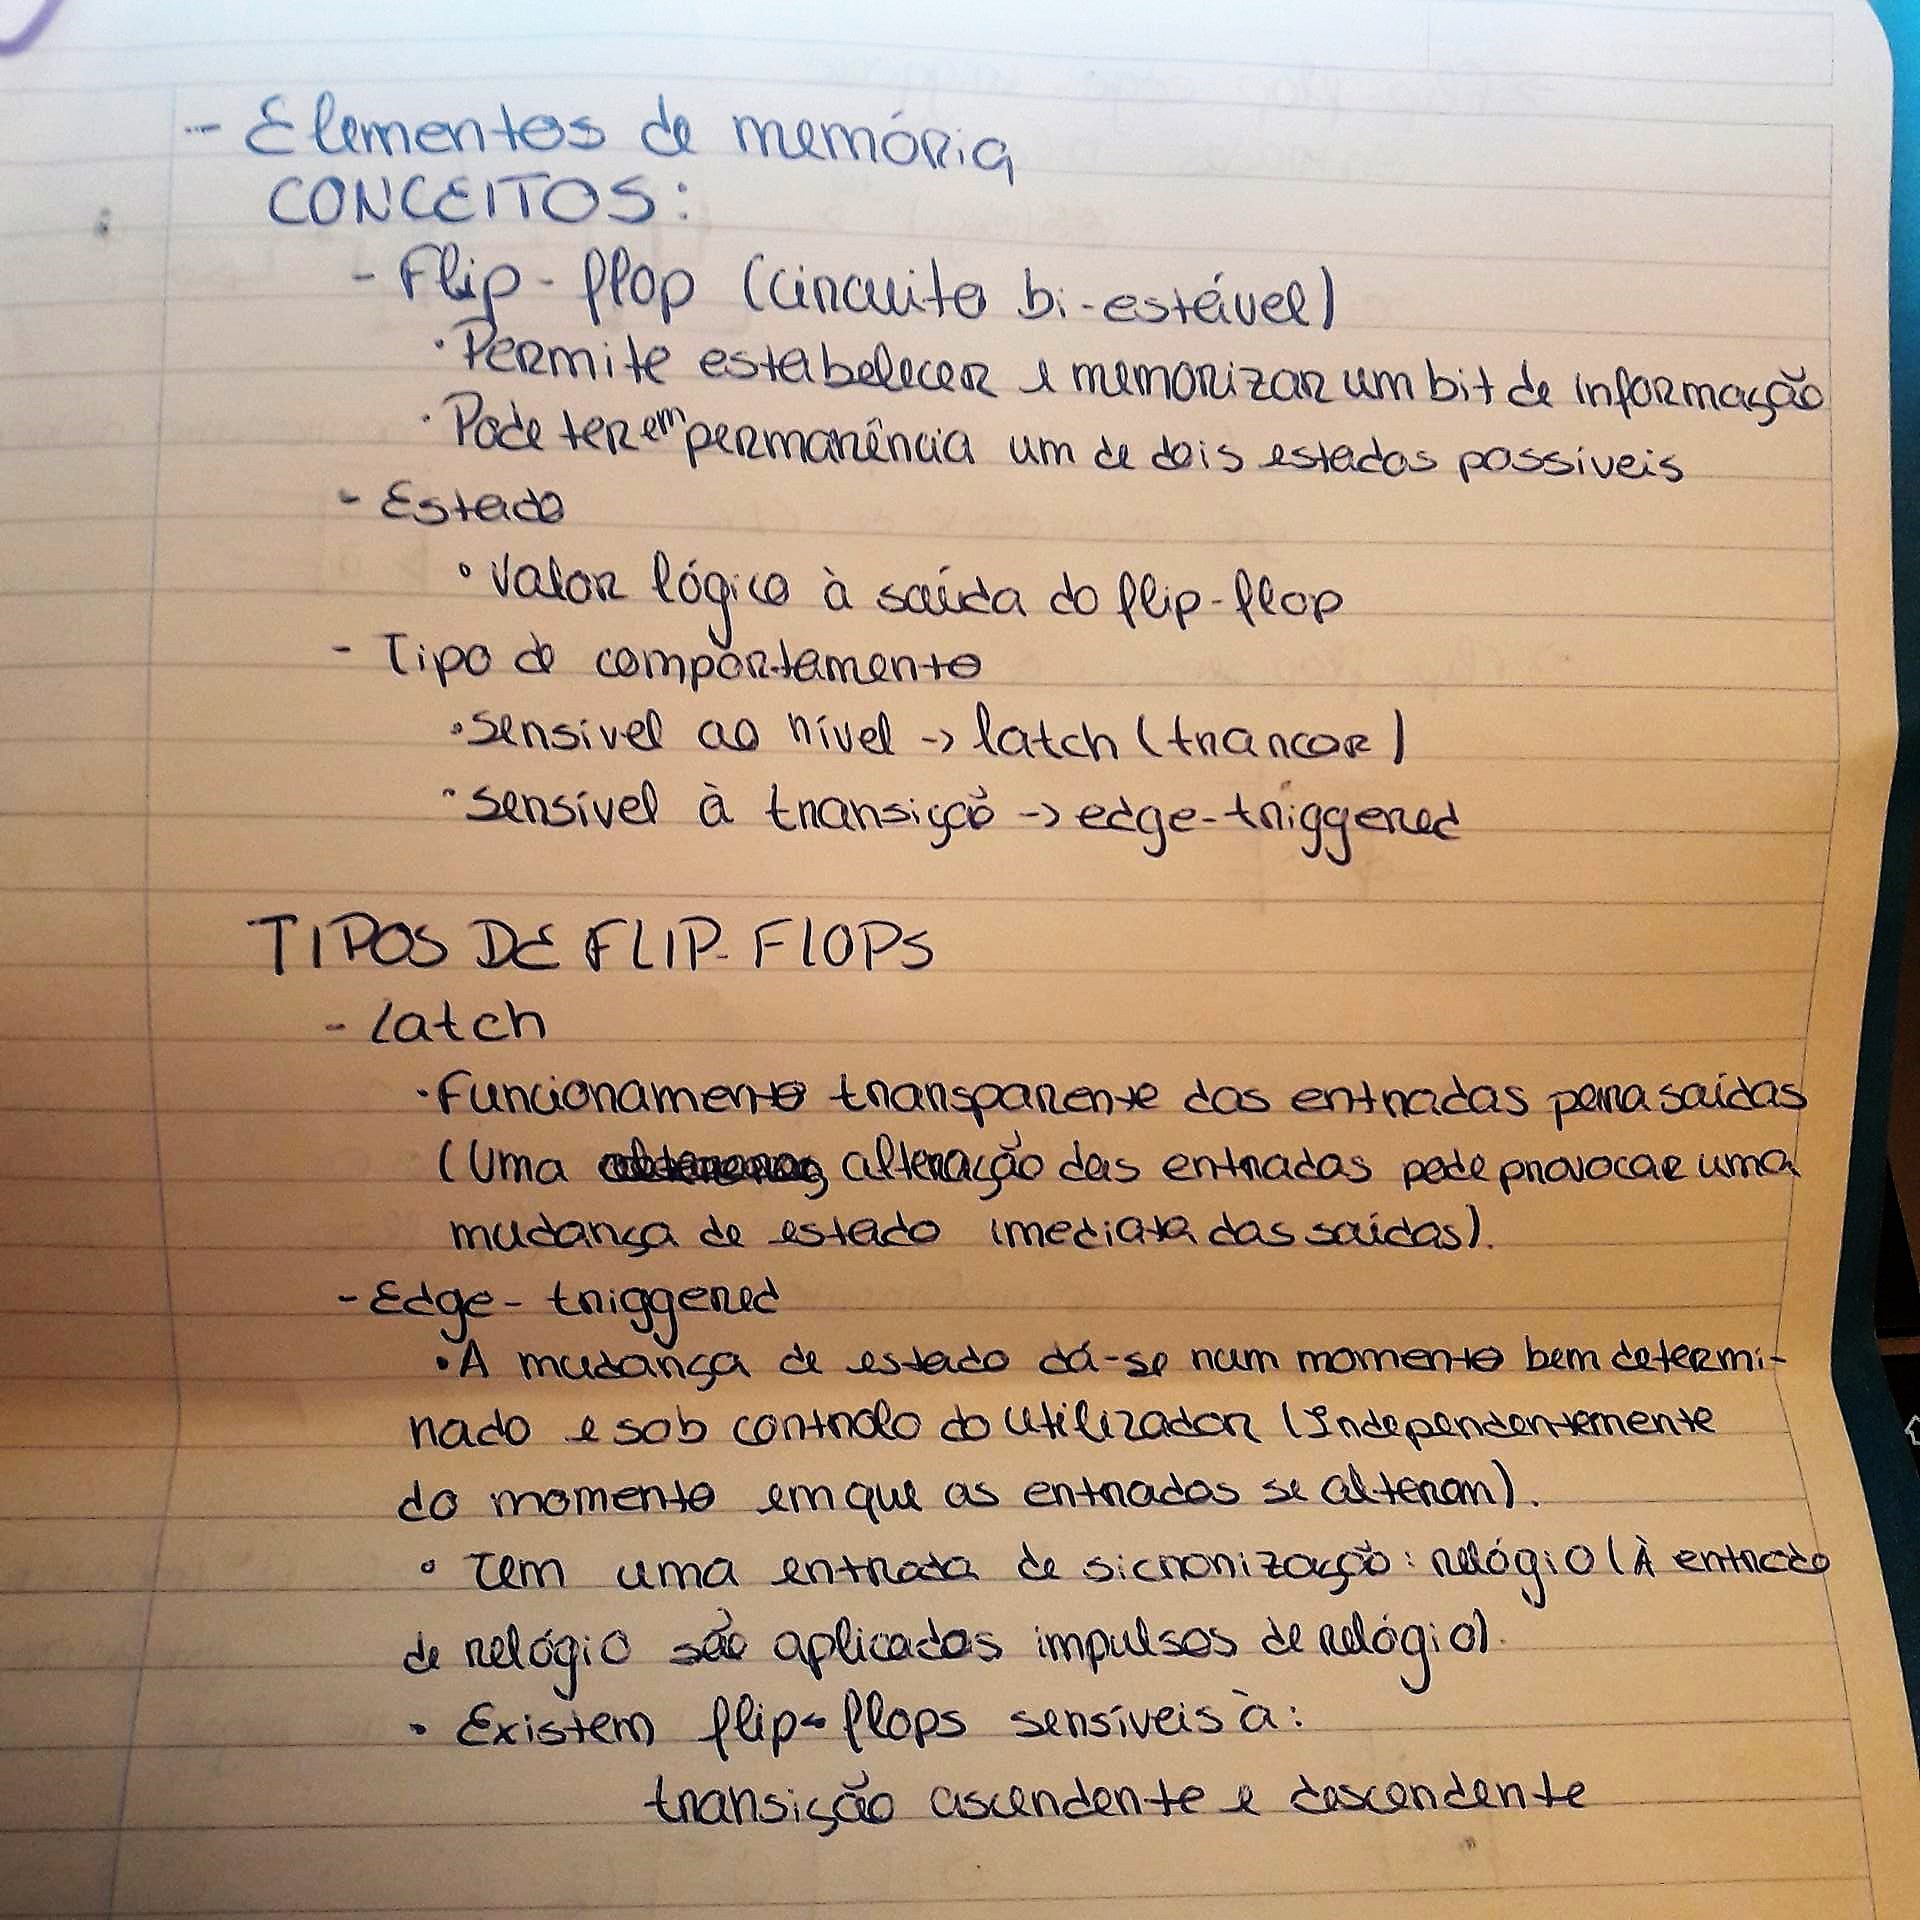 - Elementos de memória
CONCEITOS:
- Flip-flop (circuito bi-estável)
• Permite estabelecer e memorizar um bit de informação
• Pode ter em permanência um de dois estados possíveis
- Estado
• Valor lógico à saída do flip-flop
- Tipo de comportamento
• Sensivel ao nível -> latch (trancar)
• Sensível à transição -> edge-triggered
TIPOS DE FLIP-FLOPS
- Latch
• Funcionamento transparente das entradas para saídas
(Uma alteração das entradas pode provocar uma
mudança de estado imediata das saídas).
- Edge-triggered
• A mudança de estado dá-se num momento bem determi-
nado e sob controlo do utilizador (Independentemente
do momento em que as entradas se alteram).
• Tem uma entrada de sicronização: relógio (À entrada
de relógio são aplicados impulsos de relógio).
• Existem flip-flops sensíveis à:
transição ascendente e descendente